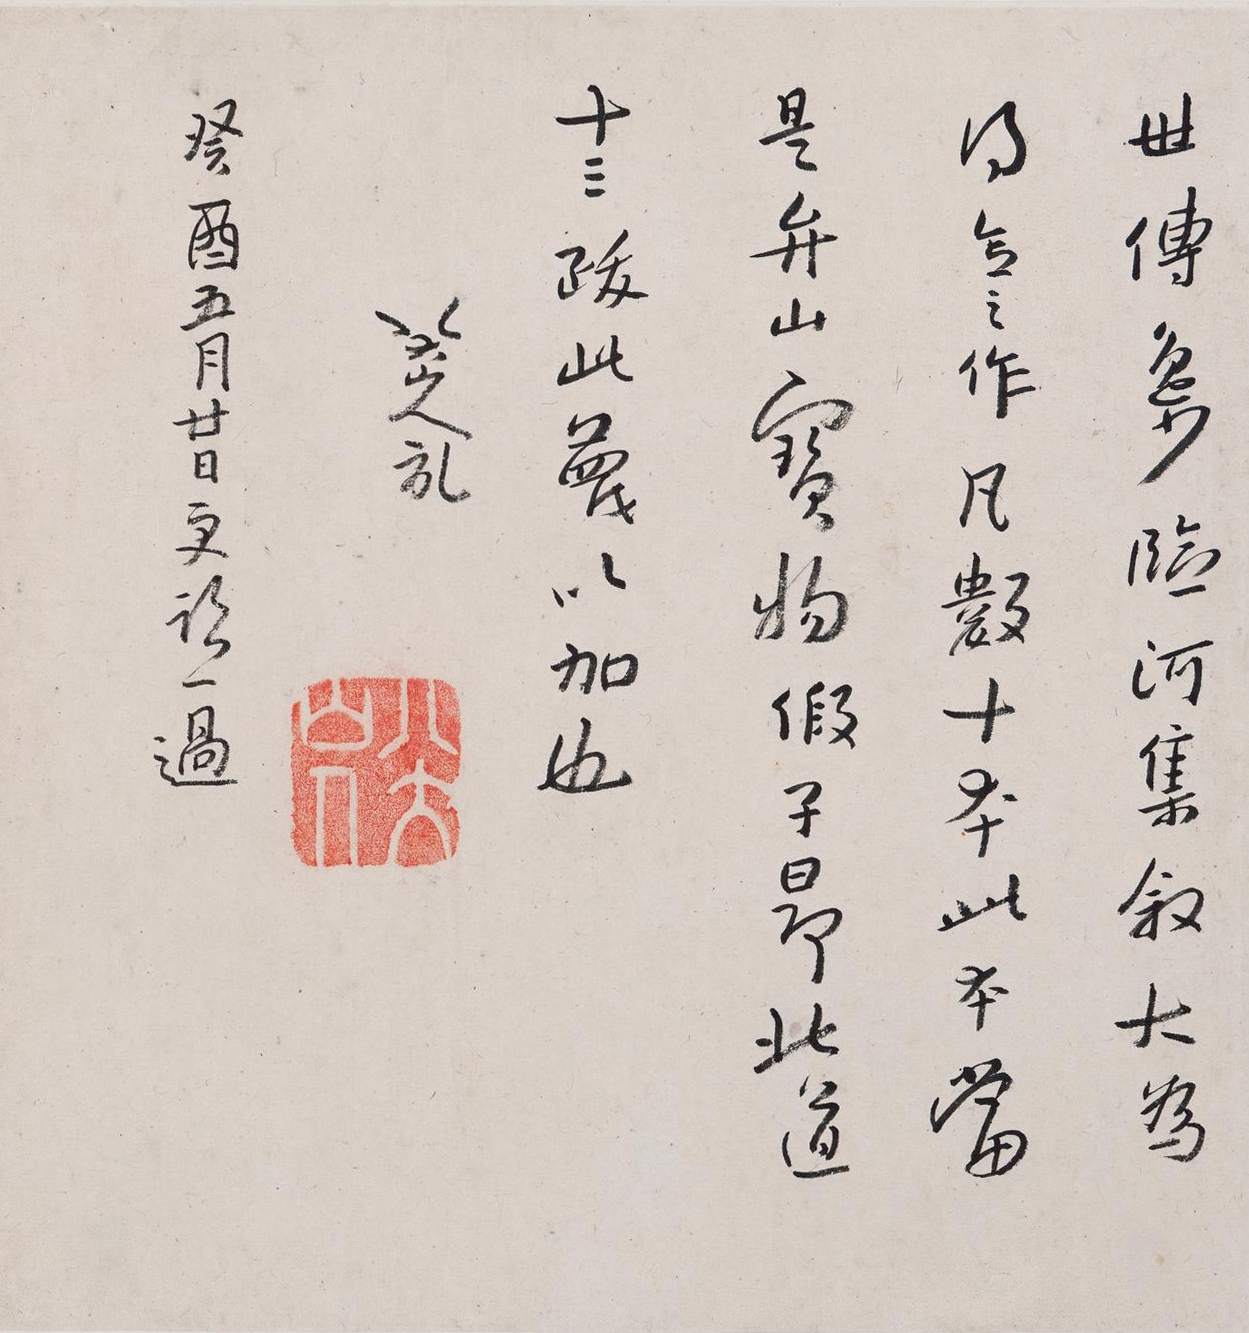 世傳臨河集敘大為
得意之作凡數十本此本當
是弁山寶物假子昂此道
十三跋此蔑以加也
八大山人
癸酉五月廿日更臨一過
八大山人